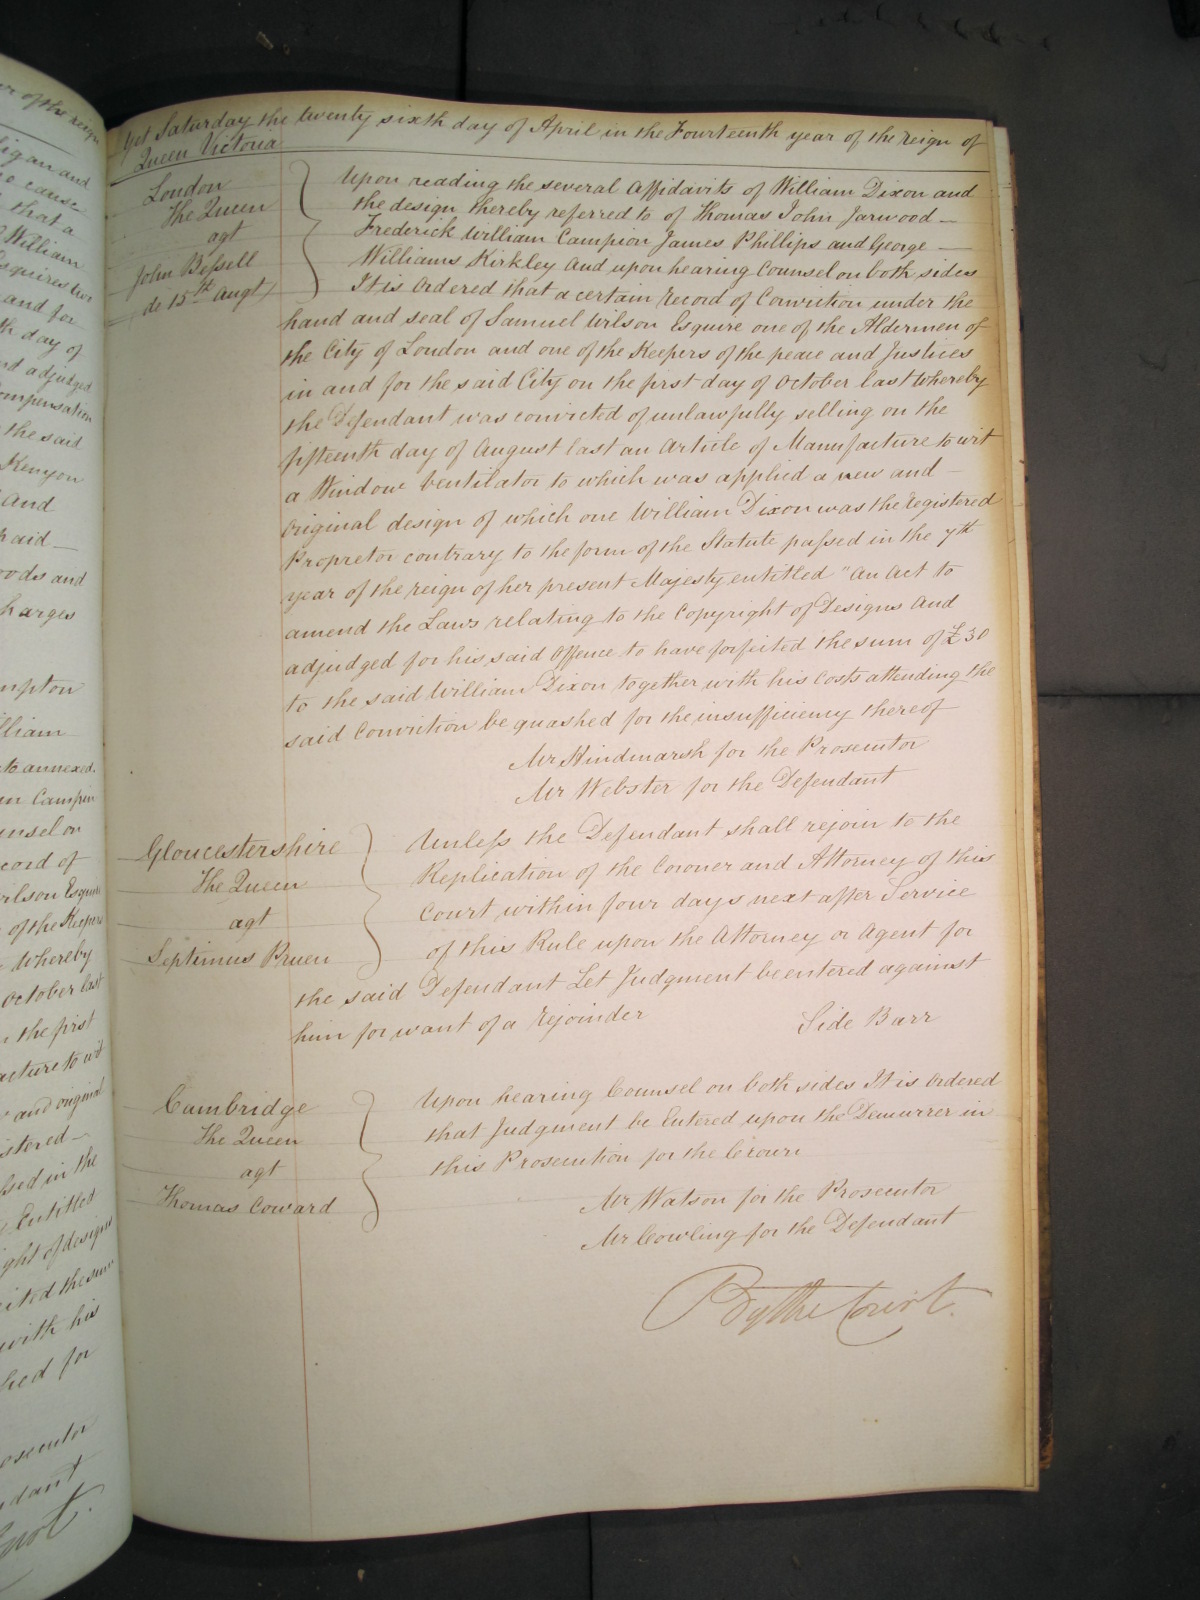 er of the reign
ligan and
no cause
that a
William
Esquires two
and for
th day of
and adjudged
ompensation
the said
Kenyon
And
paid —
oods and
harges
mpton
lliam
to annexed.
am Campion
unsel on
cord of
Wilson Esquire
of the Keepers
whereby
October last
the first
acture to wit
and original
istered —
ssed in the
Entitled
ight of designs
ited the sum
with his
shed for
osecutor
dant
Court.
Yet Saturday the twenty sixth day of April in the Fourteenth year of the reign of
Queen Victoria
London
The Queen
agt
John Bessell
de 15th Augt
Upon reading the several Affidavits of William Dixon and
the design thereby referred to of Thomas John Jarwood —
Frederick William Campion James Phillips and George —
Williams Kirkley And upon hearing Counsel on both sides
It is Ordered that a certain Record of Conviction under the
hand and seal of Samuel Wilson Esquire one of the Aldermen of
the City of London and one of the Keepers of the peace and Justices
in and for the said City on the first day of October last whereby
the Defendant was convicted of unlawfully selling on the
fifteenth day of August last an Article of Manufacture to wit
a Window Ventilator to which was applied a new and —
Original design of which one William Dixon was the Registered
Propretor contrary to the form of the Statute passed in the 7th
year of the reign of her present Majesty entitled "An Act to
amend the Laws relating to the Copyright of Designs And
adjudged for his said Offence to have forfeited the sum of £30
to the said William Dixon together with his Costs attending the
said Conviction be quashed for the insufficiency thereof
Mr Hindmarsh for the Prosecutor
Mr Webster for the Defendant
Gloucestershire
The Queen
agt
Septimus Pruen
Unless the Defendant shall rejoin to the
Replication of the Coroner and Attorney of this
Court within four days next after Service
of this Rule upon the Attorney or Agent for
the said Defendant Let Judgment be entered against
him for want of a Rejoinder
Side Barr
Cambridge
The Queen
agt
Thomas Coward
Upon hearing Counsel on both sides It is Ordered
that Judgment be Entered upon the Demurrer in
this Prosecution for the Crown
Mr Watson for the Prosecutor
Mr Cowling for the Defendant
By the Court.